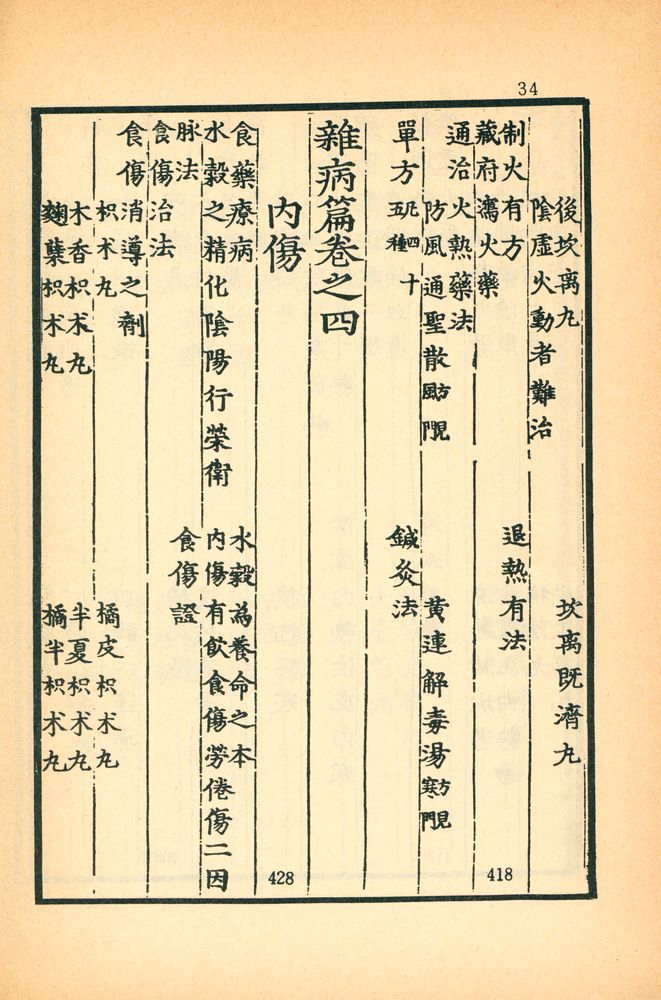 34
後坎离丸 坎离既濟丸
陰虛火動者難治
制火有方 退熱有法
藏府瀉火藥 418
通治火熱藥法
防風通聖散方見風門 黄連解毒湯方見寒門
單方凡四十五種 鍼灸法
雜病篇卷之四
內傷 428
食藥療病 水穀為養命之本
水穀之精化陰陽行荣衛 內傷有飲食傷勞倦傷二因
脉法 食傷證
食傷治法
食傷消導之劑
枳术丸 橘皮枳术丸
木香枳术丸 半夏枳术丸
麹蘖枳术丸 橘半枳术丸